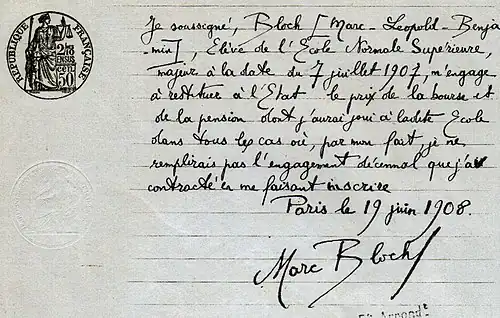 RÉPUBLIQUE FRANÇAISE
50
Je soussigné, Bloch [Marc - Léopold - Benja
-min], Elève de l'Ecole Normale Supérieure,
majeur à la date du 7 juillet 1907, m'engage
à restituer à l'Etat le prix de la bourse et
de la pension dont j'aurai joui à ladite Ecole
dans tous les cas où, par mon fait, je ne
remplirais pas l'engagement décennal que j'ai
contracté en me faisant inscrire
Paris le 19 juin 1908.
Marc Bloch